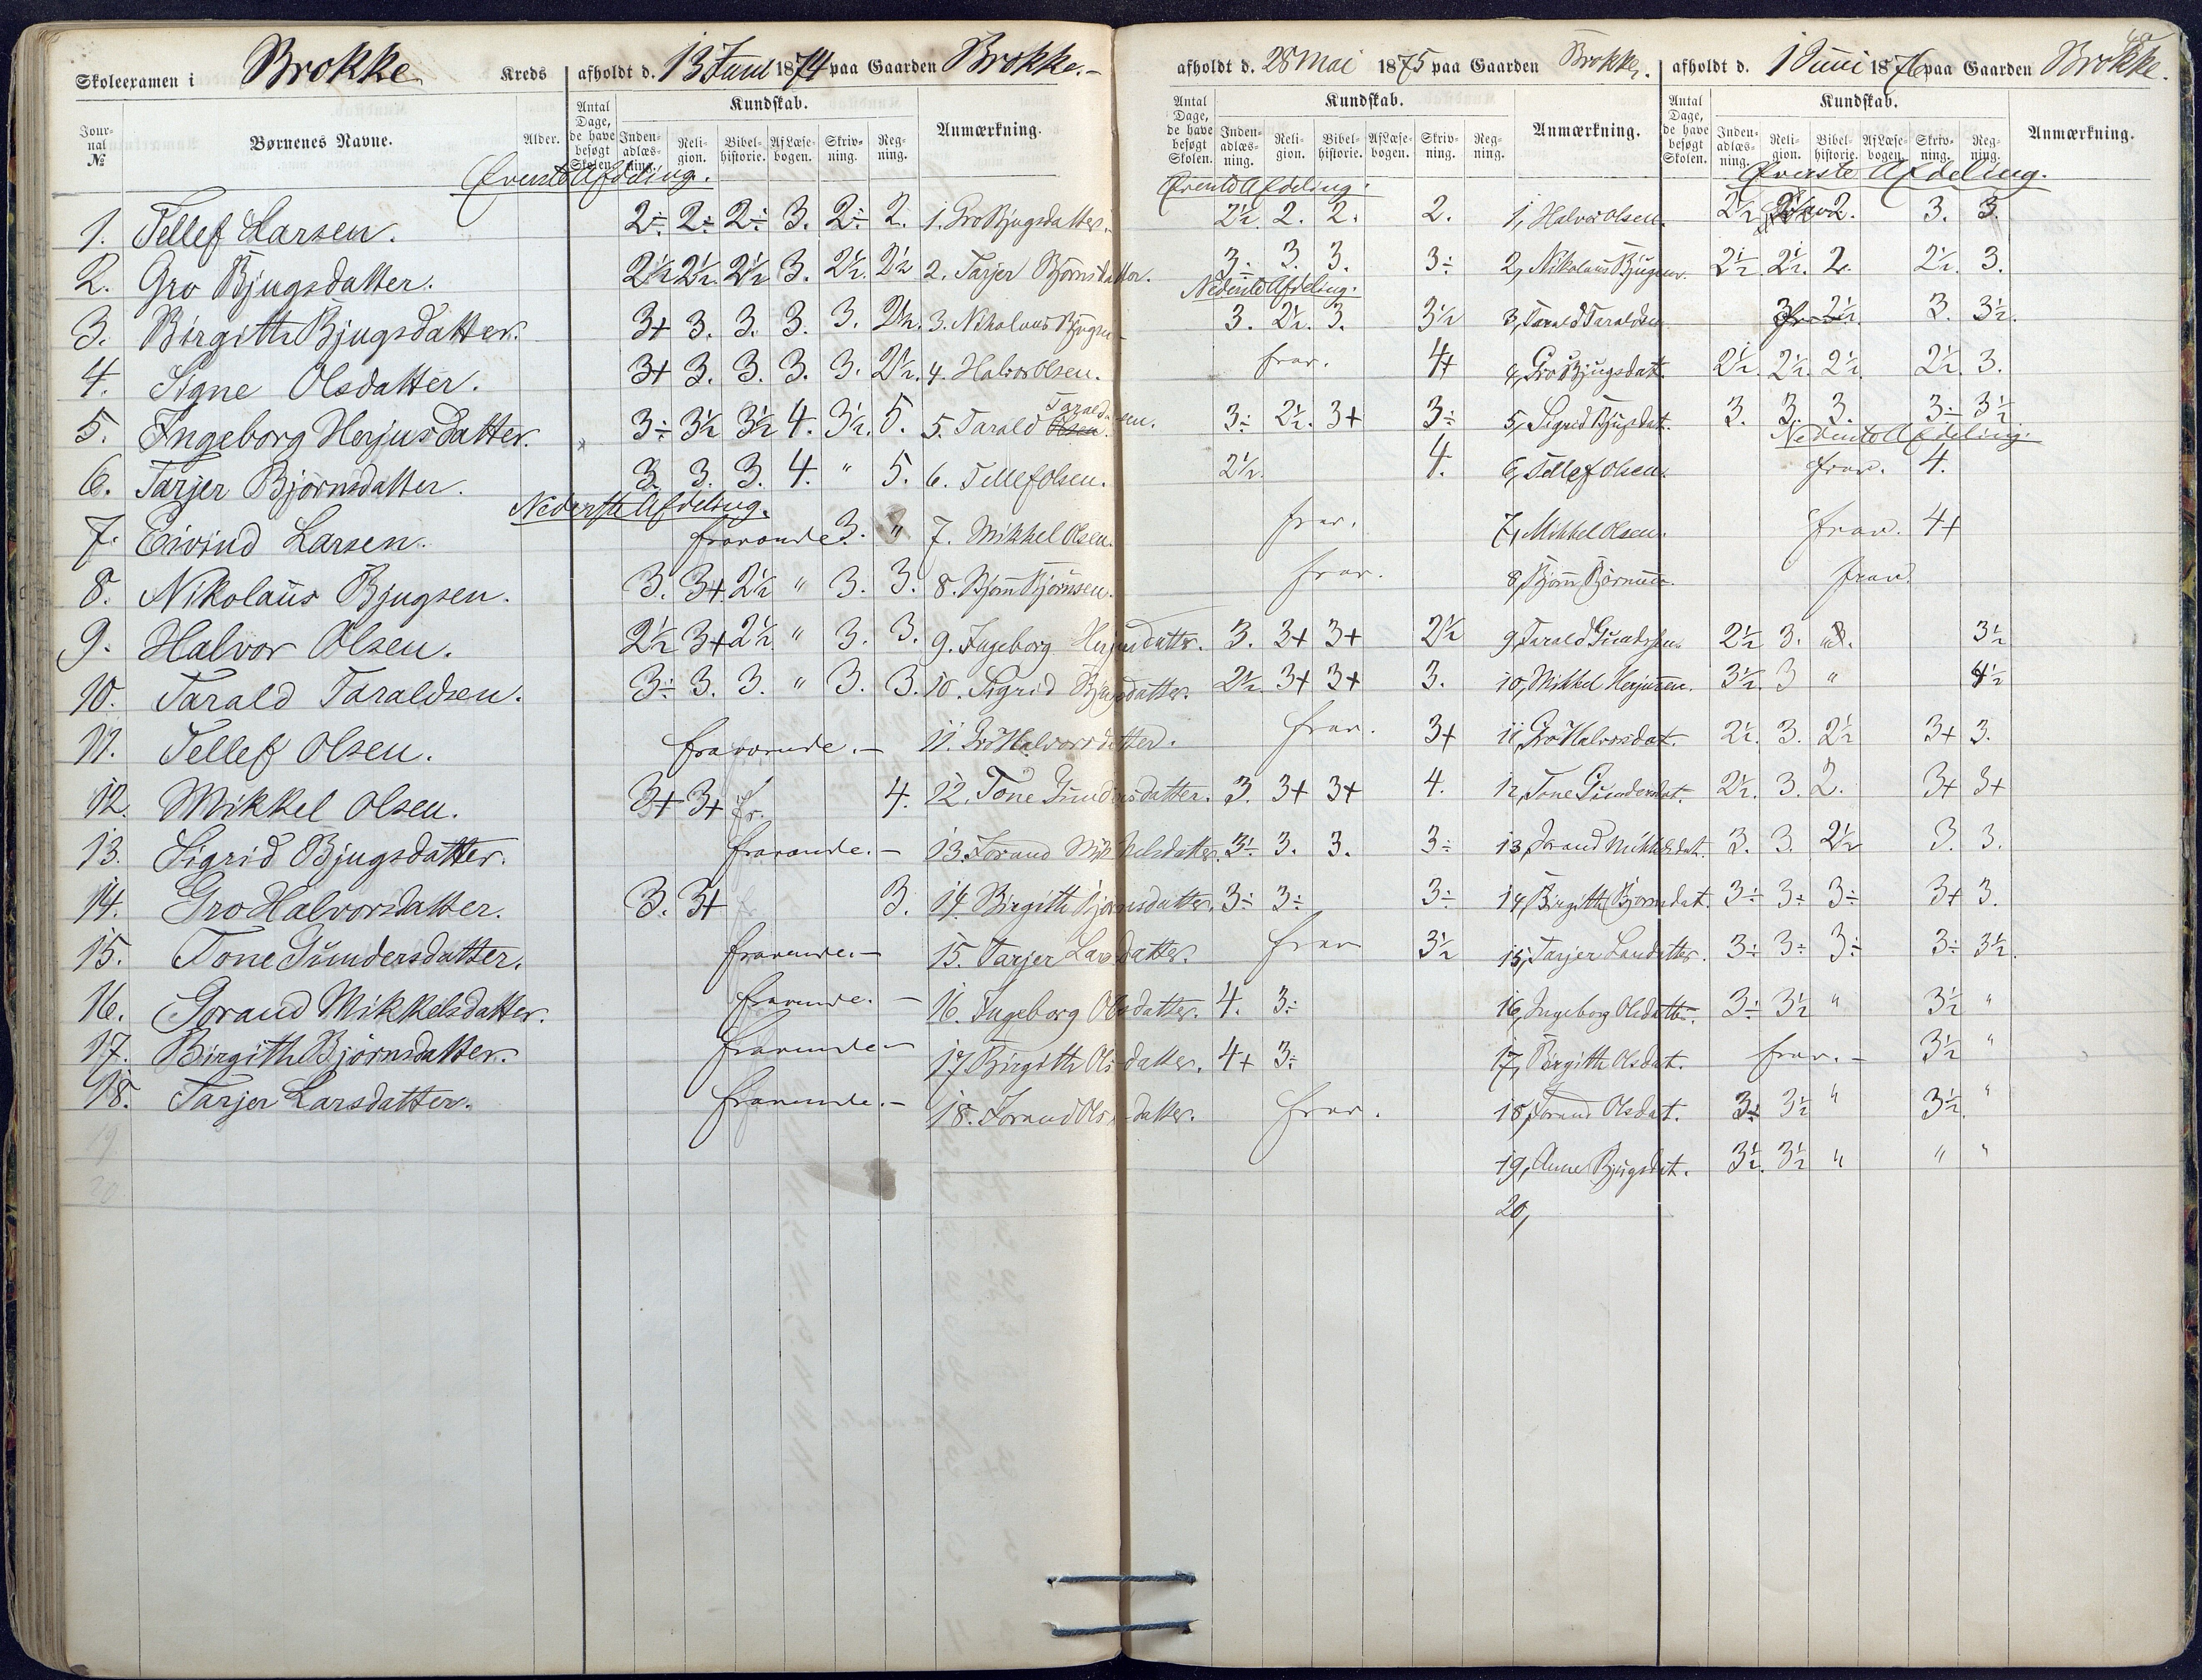 Skoleexamen i Brokke Kreds afholdt d. 13 Juni 1874 paa Gaarden Brokke.-
Journal № Børnenes Navne. Alder. Antal Dage, de have besøgt Skolen. Kundskab. Indenadlæsning. Religion. Bibelhistorie. Af Læsebogen. Skrivning. Regning. Anmærkning.
Øverste Afdeling.
1. Tellef Larsen. 2÷ 2÷ 2÷ 3. 2÷ 2. 1. Gro Bjugsdatter.
2. Gro Bjugsdatter. 2½ 2½ 2½ 3. 2½. 2½ 2. Tarjer Bjørnsdatter.
3. Birgith Bjugsdatter. 3+ 3. 3. 3. 3. 2½. 3. Nikolaus Bjugsen
4. Signe Olsdatter. 3+ 3. 3. 3. 3. 2½. 4. Halvor Olsen.
5. Ingeborg Herjusdatter. 3÷ 3½ 3½ 4. 3½. 5. 5. Tarald Olsen. Taraldsen.
6. Tarjer Bjørnsdatter. 3. 3. 3. 4. " 5. 6. Tellef Olsen.
Nederste Afdeling.
7. Eivind Larsen. fraværende 3. " 7. Mikkel Olsen.
8. Nikolaus Bjugsen. 3. 3+ 2½ " 3. 3. 8. Bjørn Bjørnsen.
9. Halvor Olsen. 2½ 3+ 2½ " 3. 3. 9. Ingeborg Herjusdatter.
10. Tarald Taraldsen. 3÷ 3. 3. " 3. 3. 10. Sigrid Bjugsdatter.
11. Tellef Olsen. fraværende.- 11. Gro Halvorsdatter.
12. Mikkel Olsen. 3+ 3+ fr. 4. 12. Tone Gundersdatter.
13. Sigrid Bjugsdatter. fraværende.- 13. Jorand Mikkelsdatter.
14. Gro Halvorsdatter. 3. 3+ 3. 14. Birgith Bjørnsdatter.
15. Tone Gundersdatter. fraværende.- 15. Tarjer Larsdatter.
16. Gorand Mikkelsdatter. fraværende.- 16. Ingeborg Olsdatter.
17. Birgith Bjørnsdatter. fraværende- 17. Birgith Olsdatter.
18. Tarjer Larsdatter. fraværende.- 18. Jorand Olsdatter.
19
20
afholdt d. 28 Mai 1875 paa Gaarden Brokke.
Antal Dage, de have besøgt Skolen. Kundskab. Indenadlæsning. Religion. Bibelhistorie. Af Læsebogen. Skrivning. Regning. Anmærkning.
Øverste Afdeling.
2½ 2. 2. 2. 1, Halvor Olsen.
3÷ 3. 3. 3÷ 2, Nikolaus Bjugsen.
Nederste Afdeling.
3. 2½. 3. 3½ 3, Tarald Taraldsen
frav. 4+ 4, Gro Bjugsdat.
3÷ 2½. 3+ 3÷ 5, Sigrid Bjugsdat.
2½. 4. 6, Tellef Olsen.
frav. 7, Mikkel Olsen.
frav. 8, Bjørn Bjørnsen.
3. 3+ 3+ 2½ 9, Tarald Gundersen
2½. 3+ 3+ 3. 10, Mikkel Herjusen.
frav. 3+ 11, Gro Halvorsdat.
3. 3+ 3+ 4. 12, Tone Gundersdat.
3½. 3. 3. 3÷ 13, Jorand Mikkelsdat.
3÷ 3÷ 3÷ 14, Birgith Bjørnsdat.
frav 3½ 15, Tarjer Larsdatter.
4. 3÷ 16, Ingeborg Olsdatter.
4+ 3÷ 17, Birgith Olsdat.
frav. 18, Jorand Olsdat.
19, Anne Bjugsdat.
20,
afholdt d. 1 Juni 1876 paa Gaarden Brokke.
Antal Dage, de have besøgt Skolen. Kundskab. Indenadlæsning. Religion. Bibelhistorie. Af Læsebogen. Skrivning. Regning. Anmærkning.
Øverste Afdeling.
2½ 2. 3. 3.
2½. 2½. 2. 2½. 3.
2½. 3. 3½.
2½. 2½. 2½. 2½. 3.
3. 3. 3. 3÷ 3½
Nederste Afdeling.
frav. 4.
frav. 4+
frav.
2½ 3. 3½
3½. 3 " 4½
2½. 3. 2½ 3+ 3.
2½. 3. 2. 3+ 3+
3. 3. 2½ 3. 3.
3÷ 3÷ 3÷ 3+ 3.
3÷ 3÷ 3÷ 3÷ 3½.
3÷ 3½ " 3½ "
frav.- 3½ "
3½ " 3½. "
3½. 3½ " " "